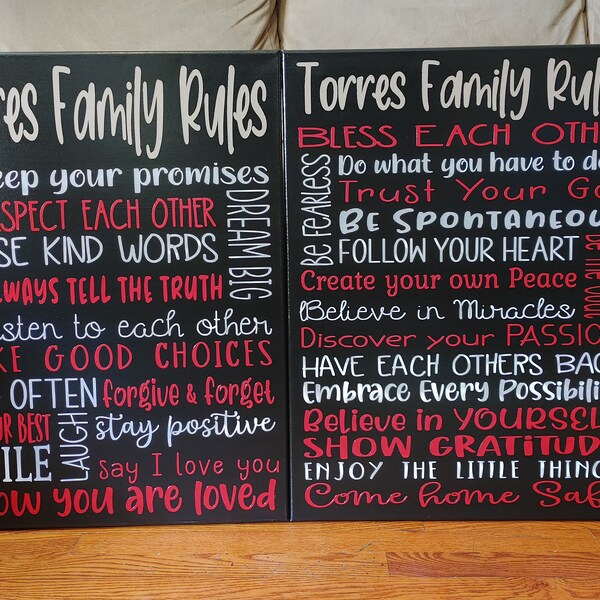 res Family Rules
eep your promises
ESPECT EACH OTHER
SE KIND WORDS
DREAM BIG
LWAYS TELL THE TRUTH
isten to each other
KE GOOD CHOICES
OFTEN forgive & forget
UR BEST
LAUGH
stay positive
ILE
say I love you
ow you are loved
Torres Family Rul
BLESS EACH OTH
BE FEARLESS
Do what you have to do
Trust Your G
BE SPONTANEOU
FOLLOW YOUR HEART
Create your own Peace
Believe in Miracles
Discover your PASSIO
HAVE EACH OTHERS BAC
Embrace Every Possibili
Believe in YOURSEL
SHOW GRATITUD
ENJOY THE LITTLE THING
Come home Saf